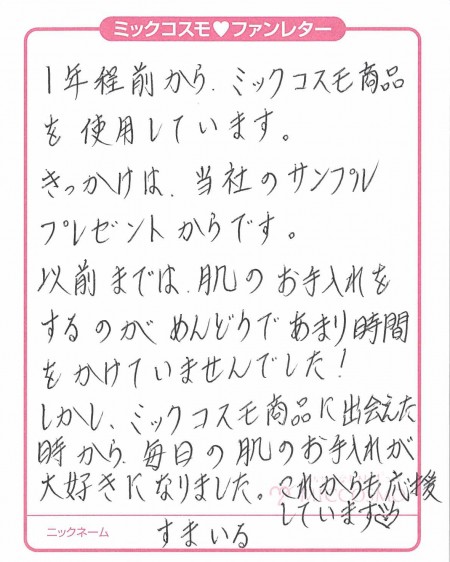 ミックコスモ♥ファンレター
1年程前から、ミックコスモ商品
を使用しています。
きっかけは、当社のサンプル
プレゼントからです。
以前までは、肌のお手入れを
するのがめんどりであまり時間
をかけていませんでした!
しかし、ミックコスモ商品に出会えた
時から、毎日の肌のお手入れが
大好きになりました。これからも応援
しています♡
ニックネーム
すまいる